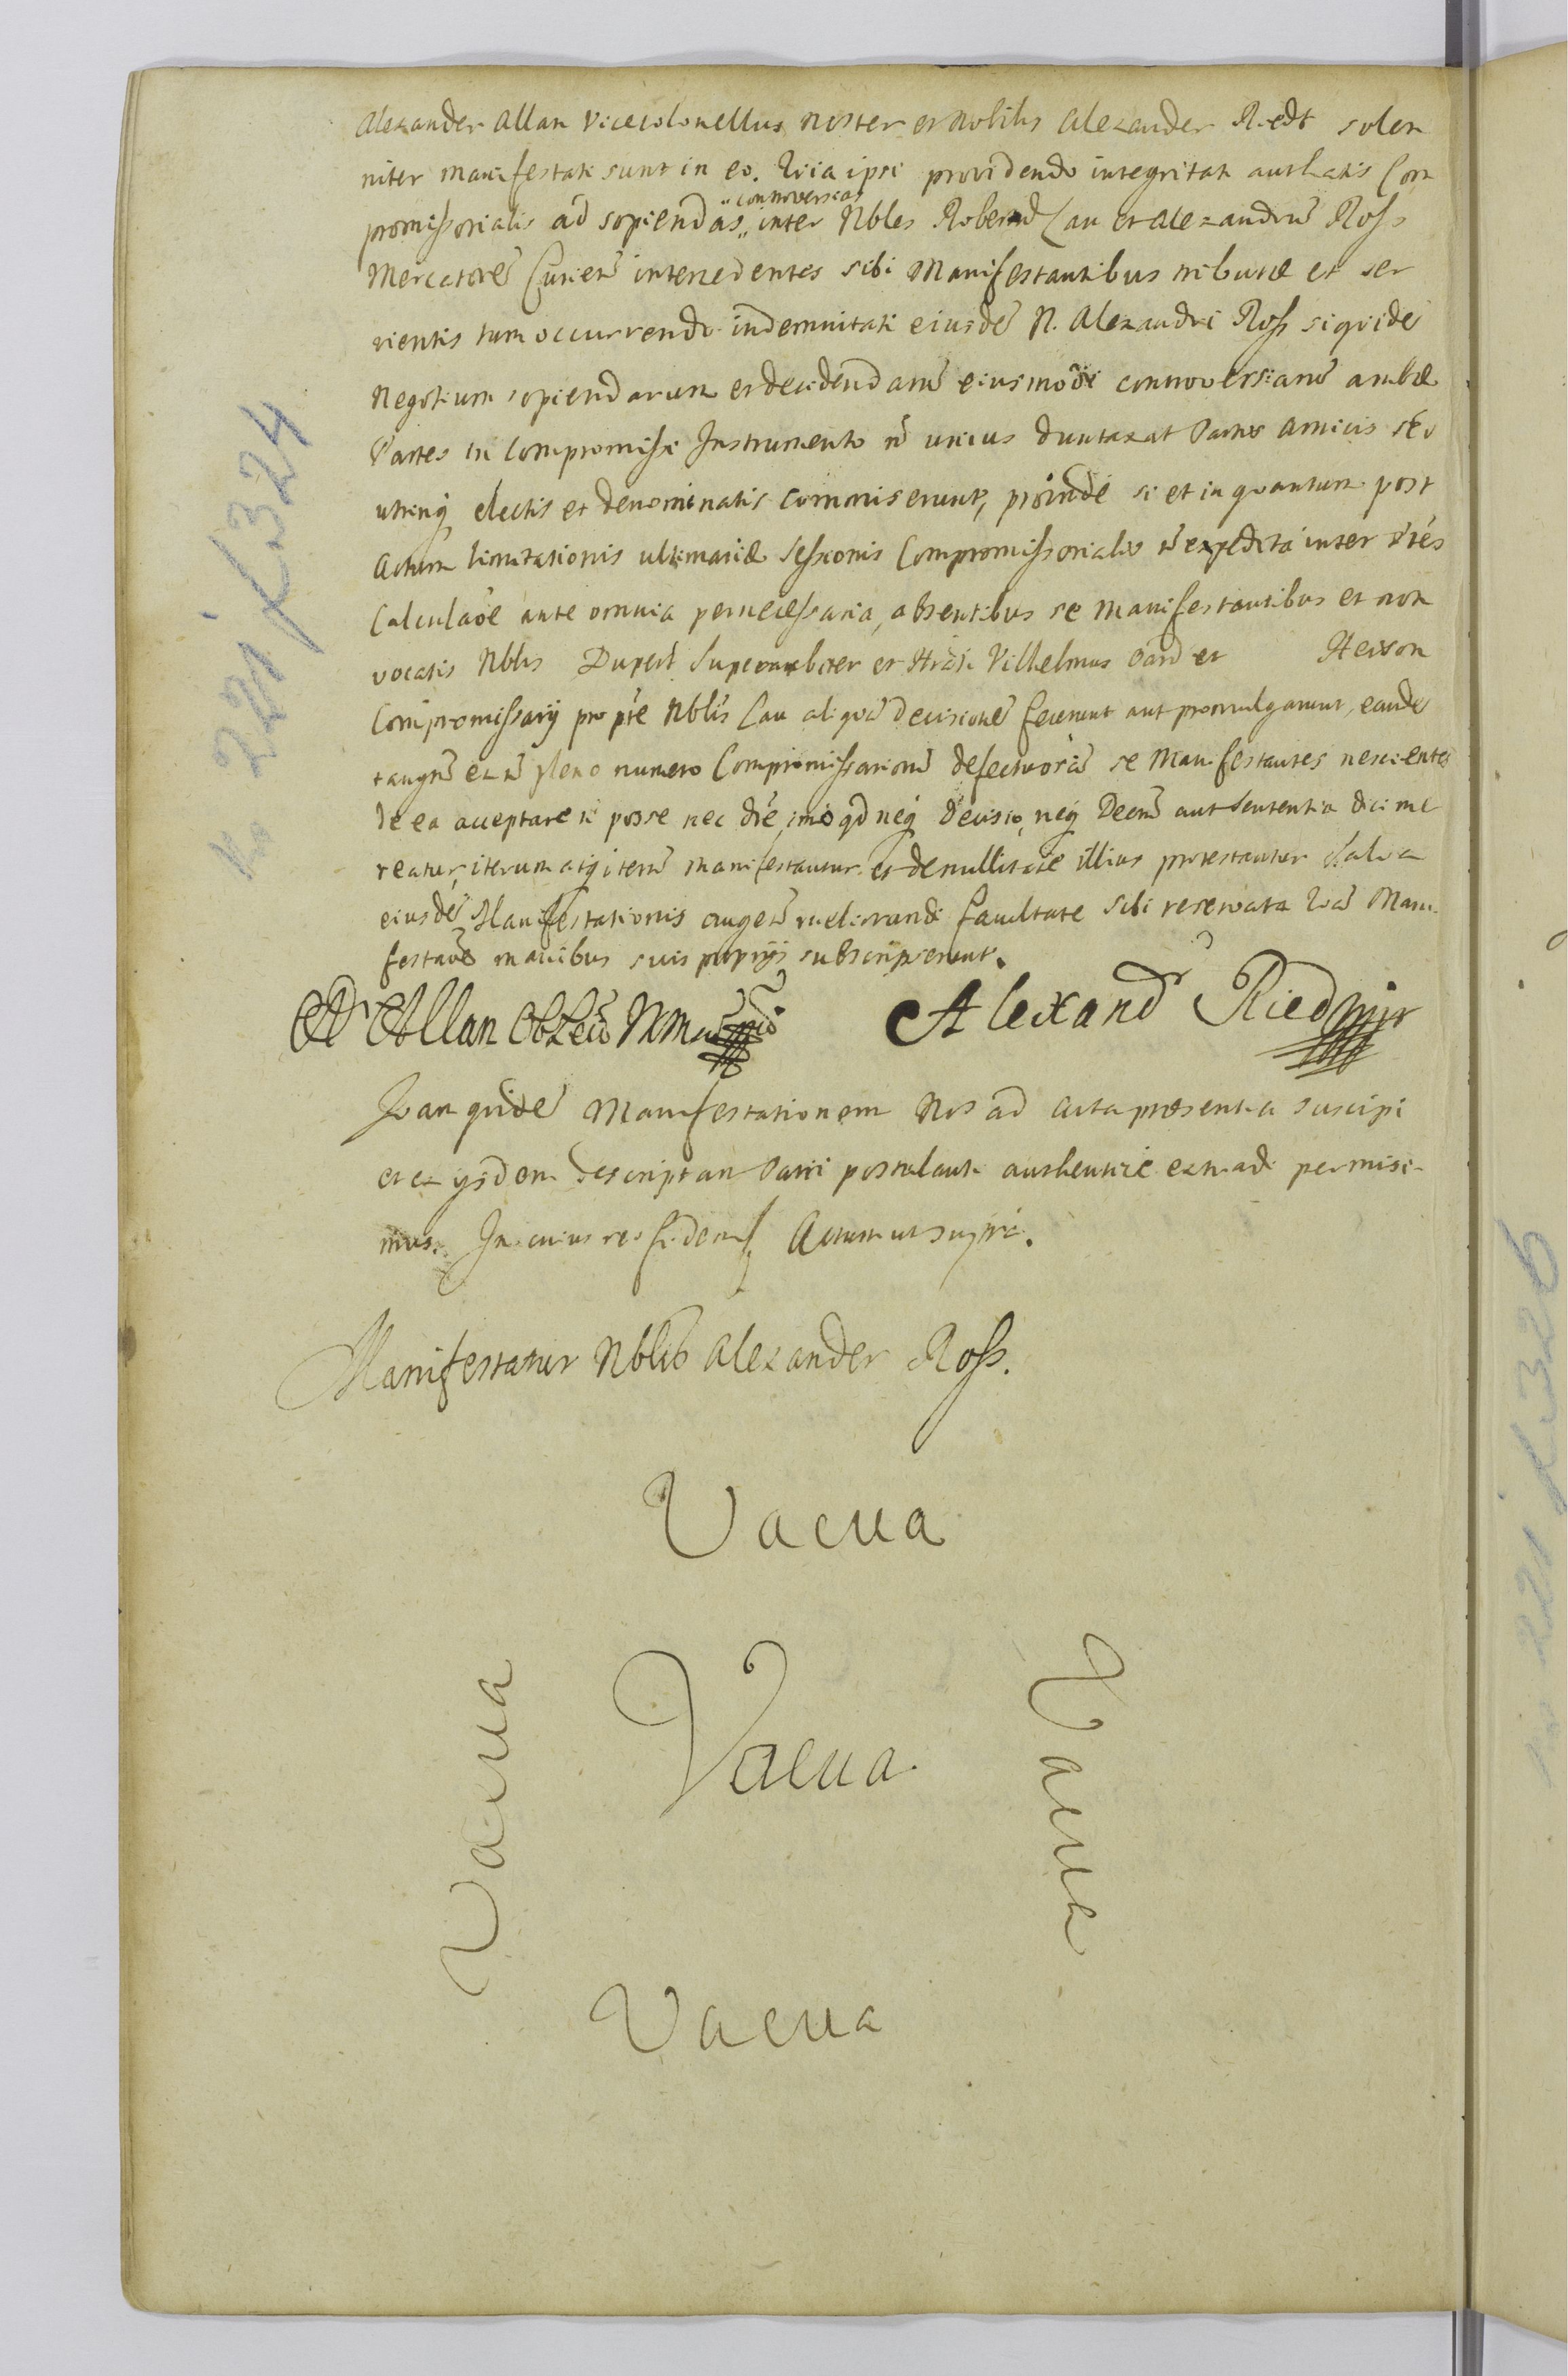 Alexander Allan Vicecolonellus noster et Nobilis Alexander Riedt solen
niter manifestati sunt in eo. Quia ipsi providendo integritati authatis Com
promissorialis ad sopiendas "controversias" inter Nbles Robertū Lau et Alexandrū Ross
Mercatorē Curiens intercedentes sibi Manifestantibus tributæ et ser
vientis tum occurrendo indemnitati eiusdē N. Alexandri Ross siquidē
Negotium sopiendarum et decidendarū eiusmodi controversiarū ambæ
Partes in Compromissi Instrumento nō unius duntaxat Partis Amicis sed
utrinq electis et denominatis commiserunt, proinde si et in quantum post
Actum limitationis ultimariæ Sessionis Compromissorialis nō expedita inter Ptes
Calculāoe ante omnia pernecessaria, absentibus se Manifestantibus et non
vocatis Nblis Superarbiter et Vilhelmus et
Compromissarij pro pte Nblis Lau aliquā decisionē fecerunt aut promulgarunt, eandē
tanqm et nō pleno numero Compromissariorū defectuosā se Manifestantes nescientes
de ea acceptare nō posse nec dre, imo qd neq decisio, neq Decrm aut Sententia dici me
reatur, iterum atq iterū manifestantur et de nullitate illius protestantur salva
eiusdē Manifestationis augen meliorandi facultate sibi reservata Quā Mani
festaoē manibus suis proprijs subscripserunt.
Alexand Ried mpr
Quam quidē Manifestationem Nos ad Acta præsentia suscipi
et ex ijsdem descriptam Parti postulanti authentice extradi permisi
mus. In cuius rei fidem Actum ut supra.
Manifestatur Nblis Alexander Ross.
Vacua
Vacua
Vacua
Vacua
Vacua
No 221 / 324